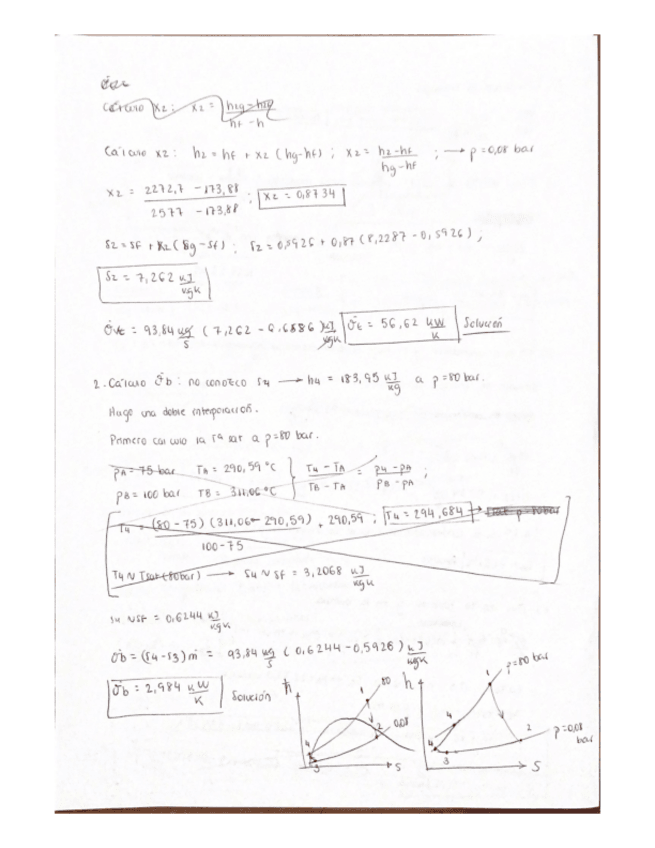 Cálculo x2: x2 = 
hf - h
Cálculo x2: h2 = hf + x2 (hg-hf) ; x2 = h2-hf / hg-hf ; → p=0,08 bar
x2 = 2272,7 - 173,88 / 2577 - 173,88 ; x2 = 0,8734
s2 = sf + x2 (sg - sf) ; s2 = 0,5926 + 0,87 (8,2287 - 0,5926) ;
s2 = 7,262 kJ/kgK
σ̇t = 93,84 kg/s (7,262 - 6,6586) kJ/kgK σ̇t = 56,62 kW/K Solución
2. Cálculo σ̇b : no conozco s4 → h4 = 183,95 kJ/kg a p=80 bar.
Hago una doble interpolación.
Primero calculo la Tª sat a p=80 bar.
pA = 75 bar TA = 290,59 °C T4 - TA / TB - TA = p4 - pA / pB - pA ;
pB = 100 bar TB = 311,06 °C
T4 = (80 - 75) (311,06 - 290,59) / 100 - 75 + 290,59 ; T4 = 294,684 →
T4 ~ Tsat (80bar) → s4 ~ sf = 3,2068 kJ/kgK
s4 ~ sf = 0,6244 kJ/kgK
σ̇b = (s4 - s3) ṁ = 93,84 kg/s (0,6244 - 0,5926) kJ/kgK
σ̇b = 2,984 kW/K Solución
h 1 80 2 0,08 4 3 s
h 1 p=80 bar 4 2 p=0,08 bar 4 3 s